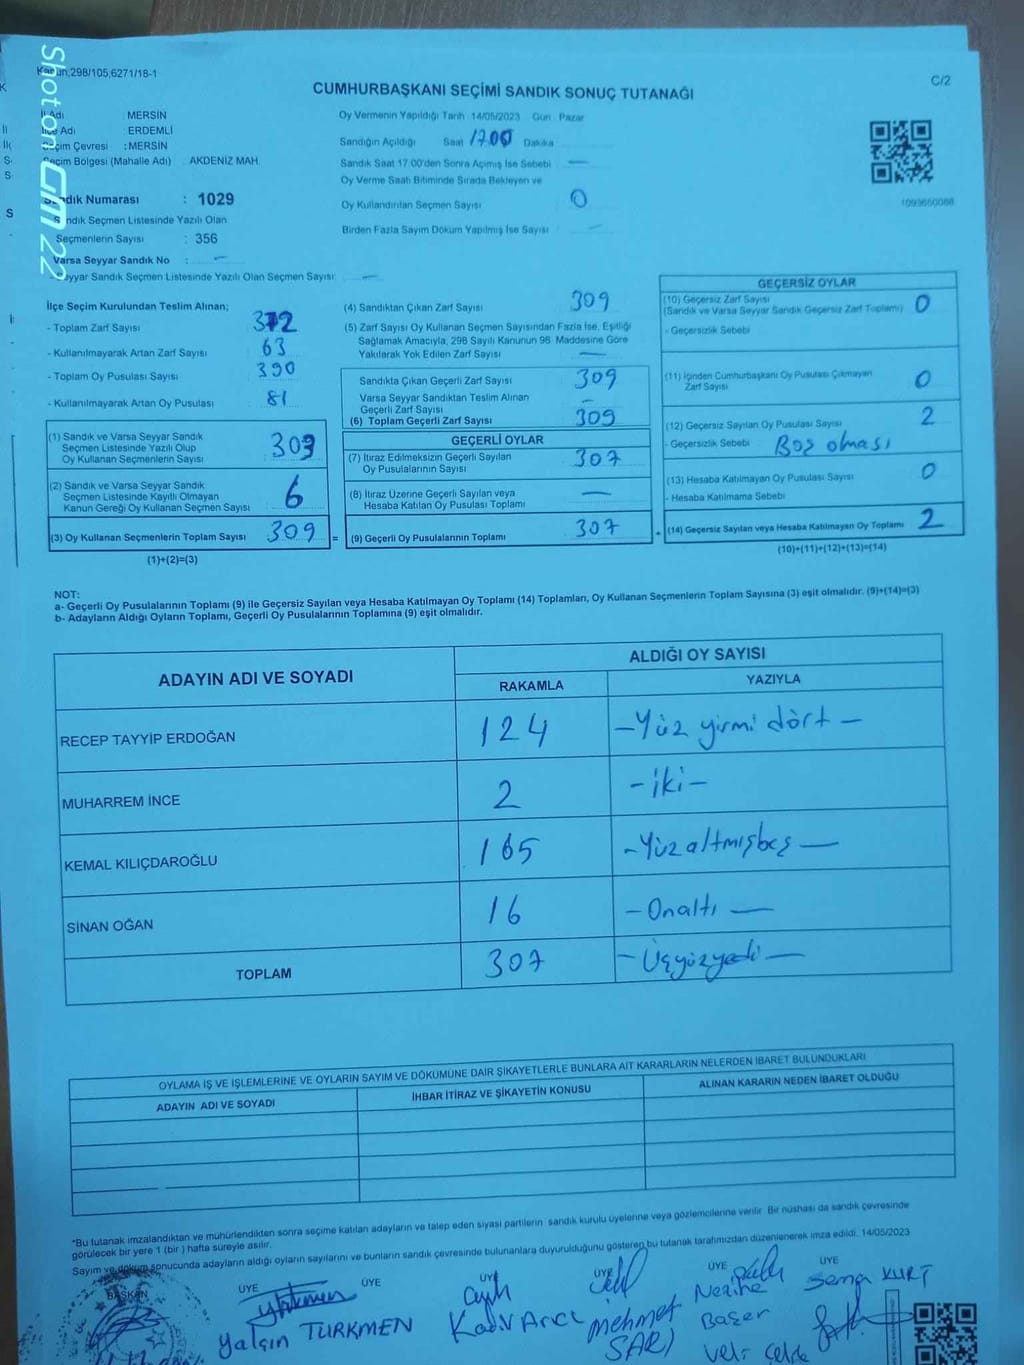 Shot on GM 22
Kanun,298/105,6271/18-1
C/2
CUMHURBAŞKANI SEÇİMİ SANDIK SONUÇ TUTANAĞI
İl Adı : MERSİN
İlçe Adı : ERDEMLİ
Seçim Çevresi : MERSİN
Seçim Bölgesi (Mahalle Adı) : AKDENİZ MAH.
Sandık Numarası : 1029
Sandık Seçmen Listesinde Yazılı Olan
Seçmenlerin Sayısı : 356
Varsa Seyyar Sandık No : -
Seyyar Sandık Seçmen Listesinde Yazılı Olan Seçmen Sayısı: -
Oy Vermenin Yapıldığı Tarih 14/05/2023 Gün Pazar
Sandığın Açıldığı Saat 17.00 Dakika
Sandık Saat 17.00'den Sonra Açımış İse Sebebi -
Oy Verme Saati Bitiminde Sırada Bekleyen ve
Oy Kullandırılan Seçmen Sayısı 0
Birden Fazla Sayım Döküm Yapılmış İse Sayısı -
1093650088
İlçe Seçim Kurulundan Teslim Alınan;
- Toplam Zarf Sayısı 372
- Kullanılmayarak Artan Zarf Sayısı 63
- Toplam Oy Pusulası Sayısı 390
- Kullanılmayarak Artan Oy Pusulası 81
(1) Sandık ve Varsa Seyyar Sandık
Seçmen Listesinde Yazılı Olup
Oy Kullanan Seçmenlerin Sayısı 303
(2) Sandık ve Varsa Seyyar Sandık
Seçmen Listesinde Kayıtlı Olmayan
Kanun Gereği Oy Kullanan Seçmen Sayısı 6
(3) Oy Kullanan Seçmenlerin Toplam Sayısı 309
(1)+(2)=(3)
(4) Sandıktan Çıkan Zarf Sayısı 309
(5) Zarf Sayısı Oy Kullanan Seçmen Sayısından Fazla İse, Eşitliği
Sağlamak Amacıyla, 298 Sayılı Kanunun 98. Maddesine Göre
Yakılarak Yok Edilen Zarf Sayısı -
Sandıkta Çıkan Geçerli Zarf Sayısı 309
Varsa Seyyar Sandıktan Teslim Alınan
Geçerli Zarf Sayısı -
(6) Toplam Geçerli Zarf Sayısı 309
GEÇERLİ OYLAR
(7) İtiraz Edilmeksizin Geçerli Sayılan
Oy Pusulalarının Sayısı 307
(8) İtiraz Üzerine Geçerli Sayılan veya
Hesaba Katılan Oy Pusulası Toplamı -
= (9) Geçerli Oy Pusulalarının Toplamı 307
GEÇERSİZ OYLAR
(10) Geçersiz Zarf Sayısı
(Sandık ve Varsa Seyyar Sandık Geçersiz Zarf Toplamı) 0
- Geçersizlik Sebebi
(11) İçinden Cumhurbaşkanı Oy Pusulası Çıkmayan
Zarf Sayısı 0
(12) Geçersiz Sayılan Oy Pusulası Sayısı 2
- Geçersizlik Sebebi Boş olması
(13) Hesaba Katılmayan Oy Pusulası Sayısı 0
- Hesaba Katılmama Sebebi
+ (14) Geçersiz Sayılan veya Hesaba Katılmayan Oy Toplamı 2
(10)+(11)+(12)+(13)=(14)
NOT:
a- Geçerli Oy Pusulalarının Toplamı (9) ile Geçersiz Sayılan veya Hesaba Katılmayan Oy Toplamı (14) Toplamları, Oy Kullanan Seçmenlerin Toplam Sayısına (3) eşit olmalıdır. (9)+(14)=(3)
b- Adayların Aldığı Oyların Toplamı, Geçerli Oy Pusulalarının Toplamına (9) eşit olmalıdır.
ADAYIN ADI VE SOYADI
ALDIĞI OY SAYISI
RAKAMLA YAZIYLA
RECEP TAYYİP ERDOĞAN 124 - Yüz yirmi dört -
MUHARREM İNCE 2 - iki -
KEMAL KILIÇDAROĞLU 165 - Yüzaltmışbeş -
SİNAN OĞAN 16 - Onaltı -
TOPLAM 307 - Üçyüzyedi -
OYLAMA İŞ VE İŞLEMLERİNE VE OYLARIN SAYIM VE DÖKÜMÜNE DAİR ŞİKAYETLERLE BUNLARA AİT KARARLARIN NELERDEN İBARET BULUNDUKLARI
ADAYIN ADI VE SOYADI İHBAR İTİRAZ VE ŞİKAYETİN KONUSU ALINAN KARARIN NEDEN İBARET OLDUĞU
*Bu tutanak imzalandıktan ve mühürlendikten sonra seçime katılan adayların ve talep eden siyasi partilerin sandık kurulu üyelerine veya gözlemcilerine verilir. Bir nüshası da sandık çevresinde
görülecek bir yere 1 (bir) hafta süreyle asılır.
Sayım ve döküm sonucunda adayların aldığı oyların sayılarını ve bunların sandık çevresinde bulunanlara duyurulduğunu gösteren bu tutanak tarafımızdan düzenlenerek imza edildi. 14/05/2023
BAŞKAN ÜYE ÜYE ÜYE ÜYE ÜYE ÜYE
Yalçın TÜRKMEN
Mehmet SARI
Nezihe Başer
Sema KURT